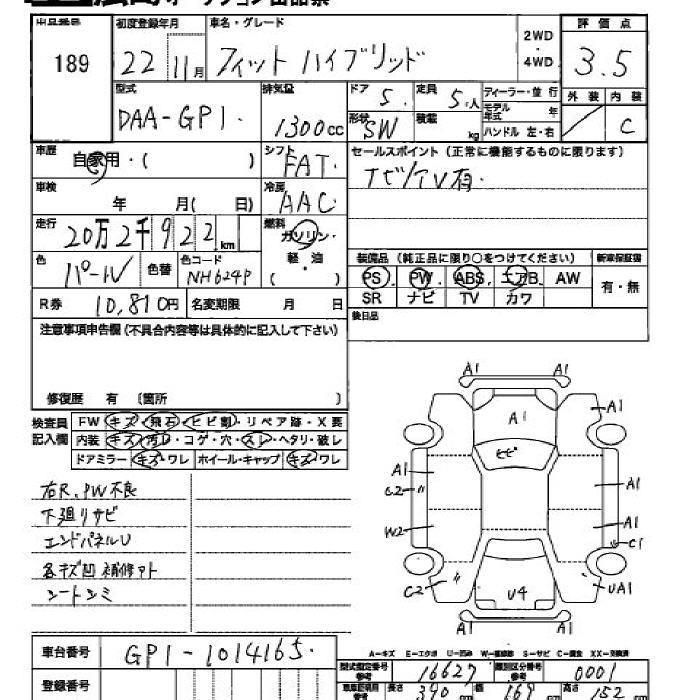 出品番号 初度登録年月 車名・グレード 2WD・4WD 評価点
189 22 11月 フィット ハイブリッド 3.5
型式 排気量 ドア 定員 ディーラー・並行 外装 内装
DAA-GP1. 1300cc 5. 5人 モデル年式 年 C
形状 SW 積載 kg ハンドル 左・右
車歴 自家用・( ) シフト FAT. セールスポイント (正常に機能するものに限ります)
車検 年 月( 日) 冷房 AAC ナビ/TV有.
走行 20万2千922km 燃料 ガソリン・軽・油( )
色 パール 色替 色コード NH624P 装備品 (純正品に限り○をつけてください) 新車保証書
PS PW ABS エアB. AW 有・無
R券 10,810円 名変期限 月 日 SR ナビ TV カワ
注意事項申告欄 (不具合内容等は具体的に記入して下さい) 後日品
修復歴 有 [箇所 ]
検査員記入欄 FW キズ・飛石・ヒビ割・リペア跡・X長
内装 キズ・汚レ・コゲ・穴・スレ・ヘタリ・破レ
ドアミラー キズ・ワレ ホイール・キャップ キズ・ワレ
右R.PW不良
下廻りサビ
エンドパネルU
各キズ凹 補修アト
シートシミ
A1 A1
A1 A1
ヒビ
A1 A1
C2〃
W2 A1
C1
C2 〃 U4 UA1
A1 A1
A-キズ E-エクボ U-凹み W-補修跡 S-サビ C-腐食 XX-交換済
車台番号 GP1-1014165.
型式指定番号 参考 16627 類別区分番号 参考 0001
登録番号 車庫証明用 参考 長さ 390 cm 幅 169 cm 高さ 152 cm